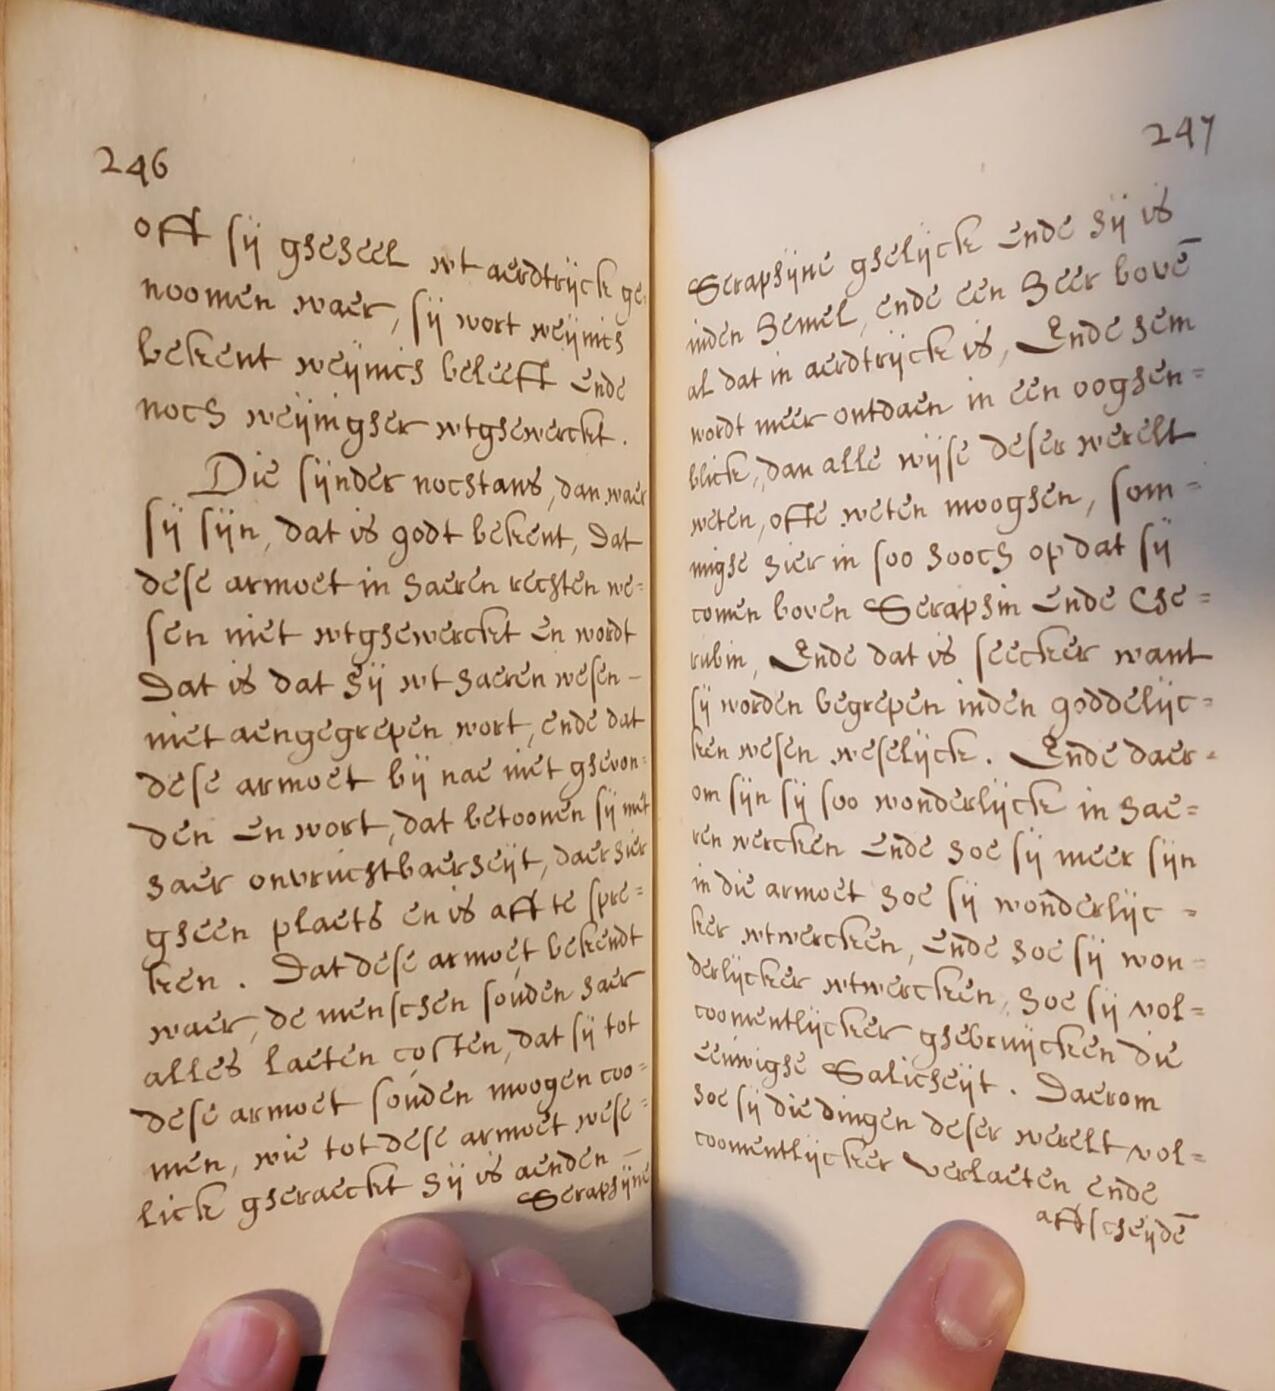 246
oft sij gheheel wt aerdtrijck ge,
noomen waer, sij wort weijnich
bekent weijnich beleeft ende
noch weijnigher wtghewerckt.
Die sijnder nochtans, dan waer
sij sijn, dat is godt bekent, Dat
dese armoet in haeren rechten we=
sen niet wtghewerckt en wordt
Dat is dat hij wt haeren wesen –
niet aengegrepen wort, ende dat
dese armoet bij nae niet ghevon=
den en wort, dat betoonen sij met
haer onvruchtbaerheijt, daer hier
gheen plaets en is aff te spre=
ken. Dat dese armoet bekendt
waer, de menschen souden haer
alles laeten costen, dat sij tot
dese armoet souden moogen coo=
men, wie tot dese armoet wese=
lick gheraeckt hij is aenden –
Seraphijne
247
Seraphijne ghelijck ende hij is
inden hemel, ende een heer bovē
al dat in aerdtrijck is, Ende hem
wordt meer ontdaen in een ooghen=
blick, dan alle wijse deser werelt
weten, ofte weten mooghen, som=
mighe hier in soo hooch op dat sij
comen boven Seraphin ende Che=
rubin, Ende dat is seecker want
sij worden begrepen inden goddelijc=
ken wesen weselijck. Ende daer=
om sijn sij soo wonderlijck in hae=
ren wercken ende hoe sij meer sijn
in die armoet hoe sij wonderlijc=
ker wtwercken, ende hoe sij won=
derlijcker wtwercken, hoe sij vol=
coomentlijcker ghebruijcken die
eeuwighe Salicheijt. Daerom
hoe sij die dingen deser werelt vol=
coomentlijcker verlaeten ende
affscheijdē